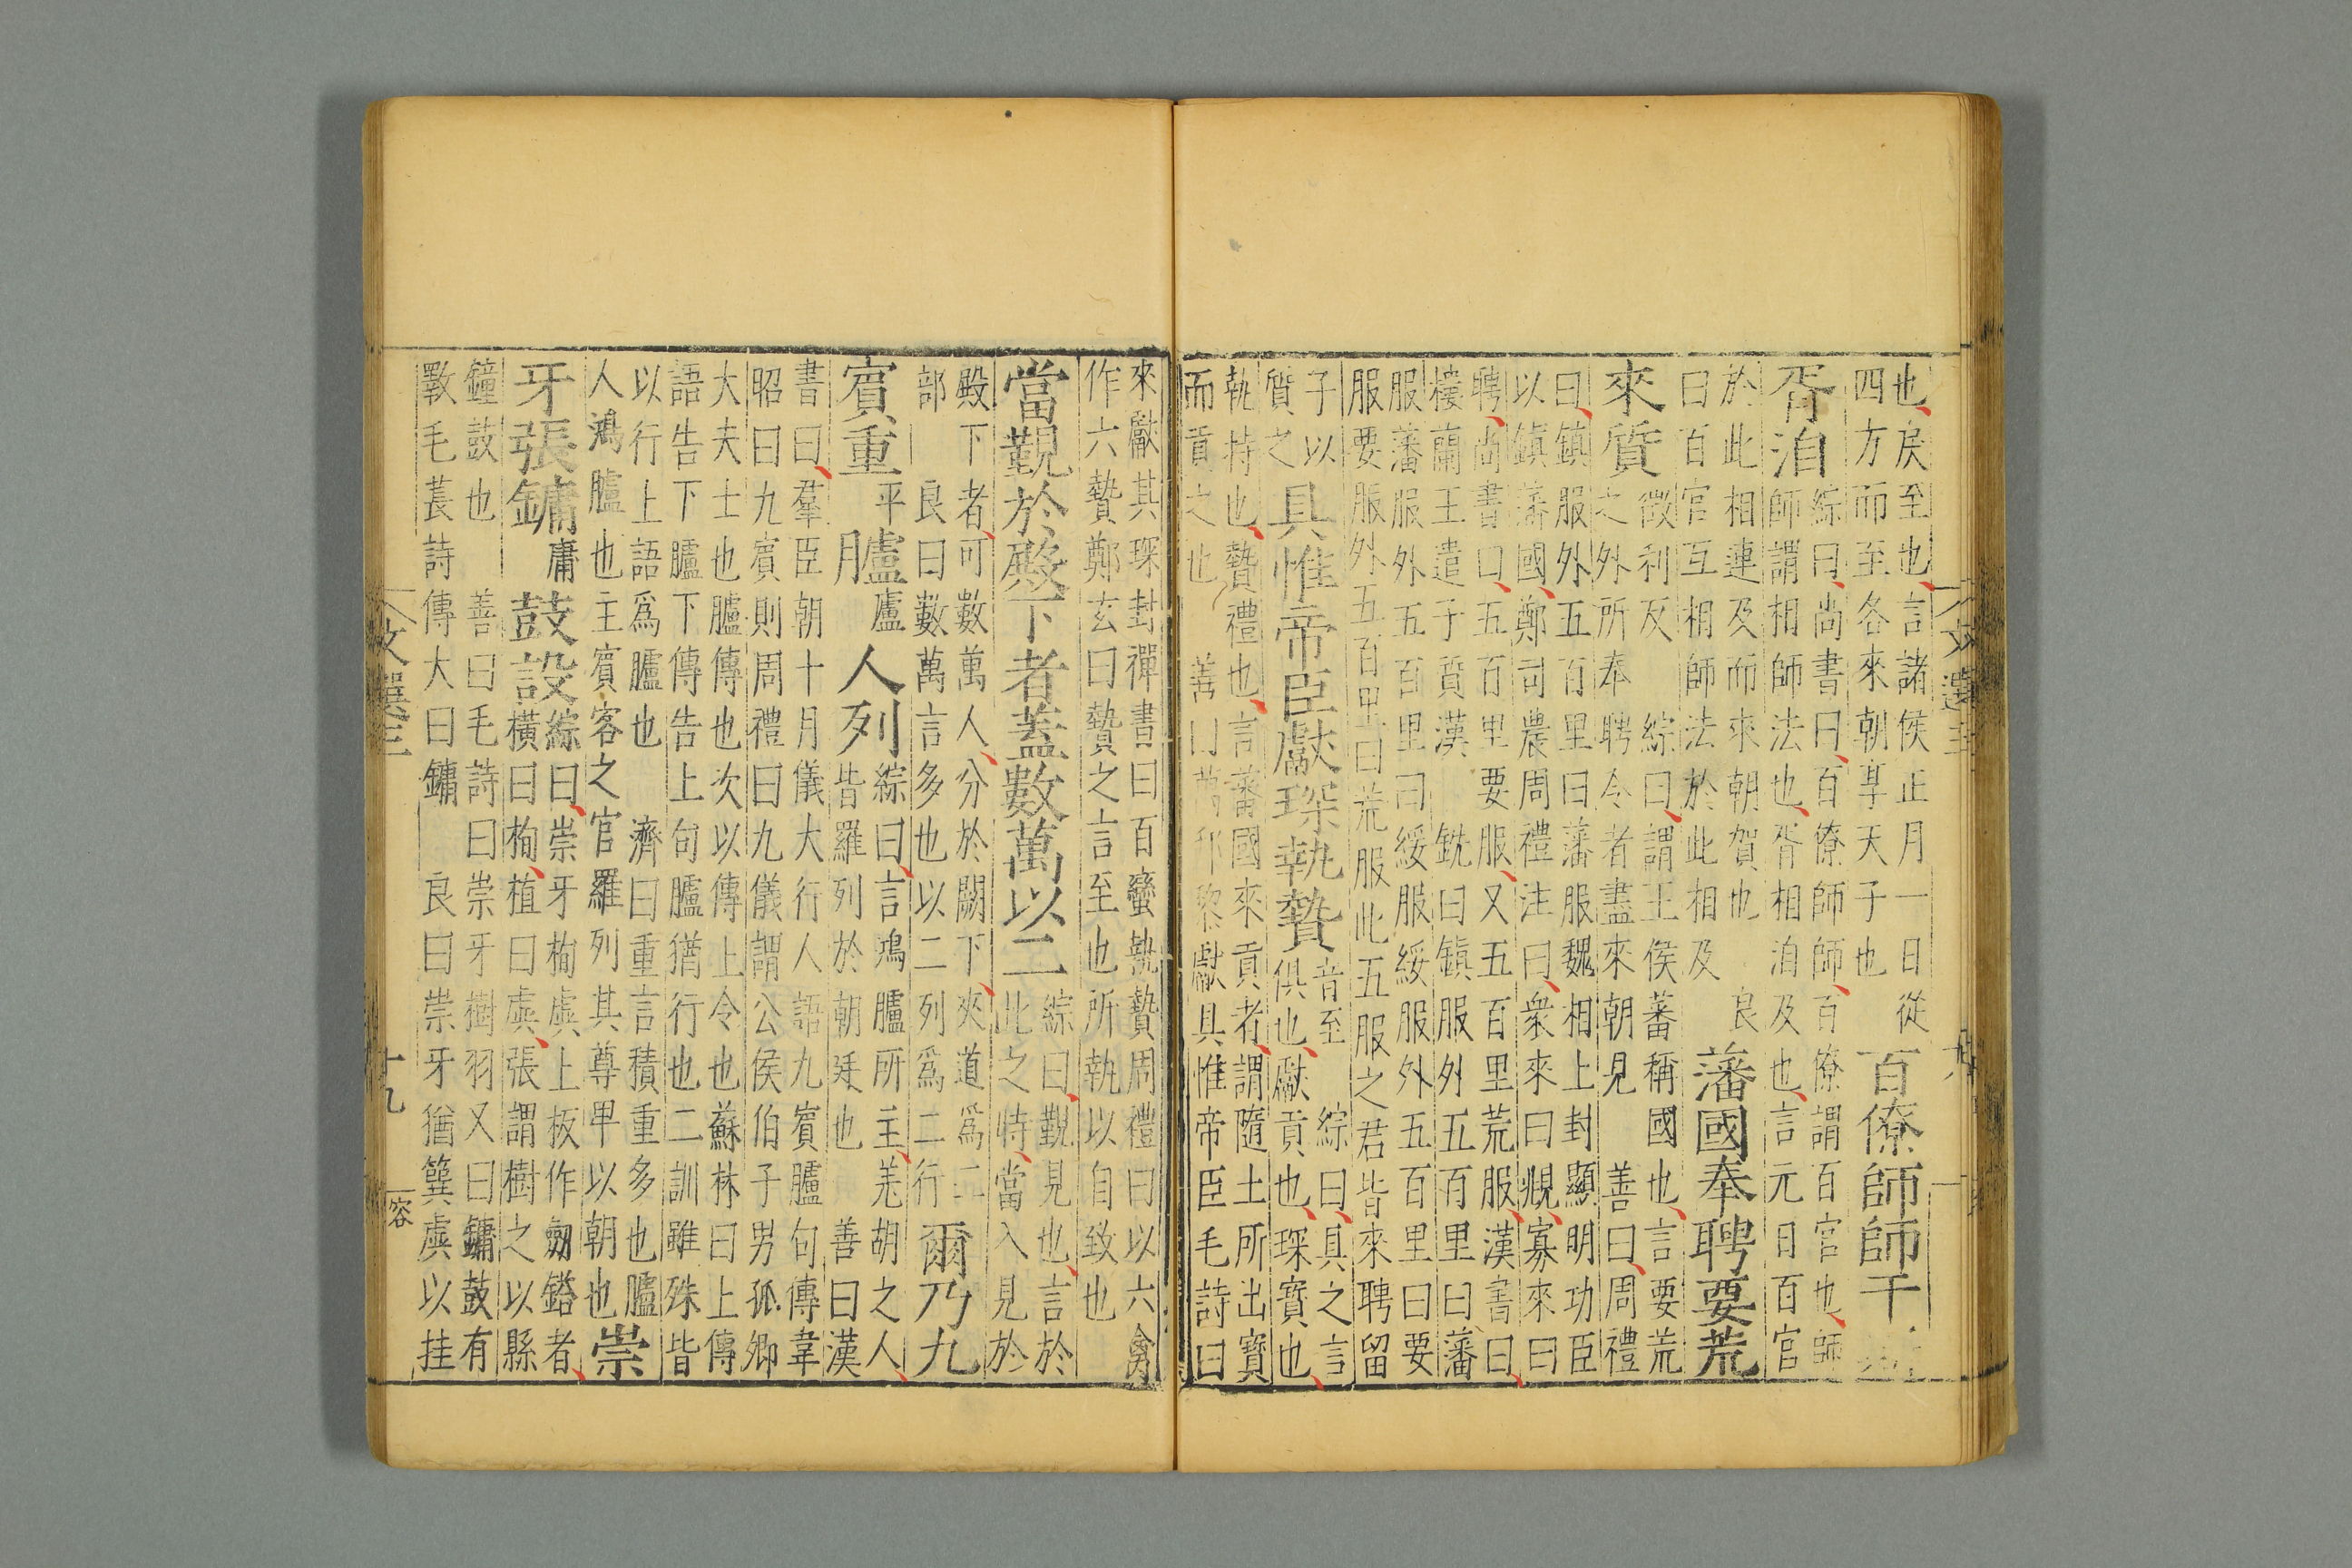 也戾至也言諸侯正月一日從
四方而至各來朝享天子也
百僚師師于
胥洎
綜曰尚書曰百僚師師百僚謂百官也師
師謂相師法也胥相洎及也言元日百官
於此相連及而來朝賀也 良
曰百官互相師法於此相及
藩國奉聘要荒
來質
徵利反 綜曰謂王侯蕃稱國也言要荒
之外所奉聘令者盡來朝見 善曰周禮
曰鎮服外五百里曰藩服魏相上封顯明功臣
以鎮藩國鄭司農周禮注曰衆來曰覜寡來曰
聘尚書曰五百里要服又五百里荒服漢書曰
樓蘭王遣子質漢 銑曰鎮服外五百里曰藩
服藩服外五百里曰綏服綏服外五百里曰要
服要服外五百里曰荒服此五服之君皆來聘留
子以
質之
具惟帝臣獻琛執贄
音至 綜曰具之言
俱也獻貢也琛寶也
執持也贄禮也言蕃國來貢者謂隨土所出寶
而貢之也 善曰萬邦黎獻具惟帝臣毛詩曰
來獻其琛封禪書曰百蠻執贄周禮曰以六禽
作六贄鄭玄曰贄之言至也所執以自致也
當覲於殿下者蓋數萬以二
綜曰覲見也言於
此之時當入見於
殿下者可數萬人分於闕下夾道爲二
部 良曰數萬言多也以二列爲二行
爾乃九
賓重
平
臚
廬
人列
綜曰言鴻臚所主羌胡之人
皆羅列於朝廷也 善曰漢
書曰羣臣朝十月儀大行人語九賓臚句傳韋
昭曰九賓則周禮曰九儀謂公侯伯子男孤卿
大夫士也臚傳也次以傳上令也蘇林曰上傳
語告下臚下傳告上句臚猶行也二訓雖殊皆
以行上語爲臚也 濟曰重言積重多也臚
人鴻臚也主賓客之官羅列其尊卑以朝也
崇
牙張鏞
庸
鼓設
綜曰崇牙栒虡上板作劒鍃者
橫曰栒植曰虡張謂樹之以縣
鐘鼓也 善曰毛詩曰崇牙樹羽又曰鏞鼓有
斁毛萇詩傳大曰鏞 良曰崇牙猶簨虡以挂
文選三
十九
容